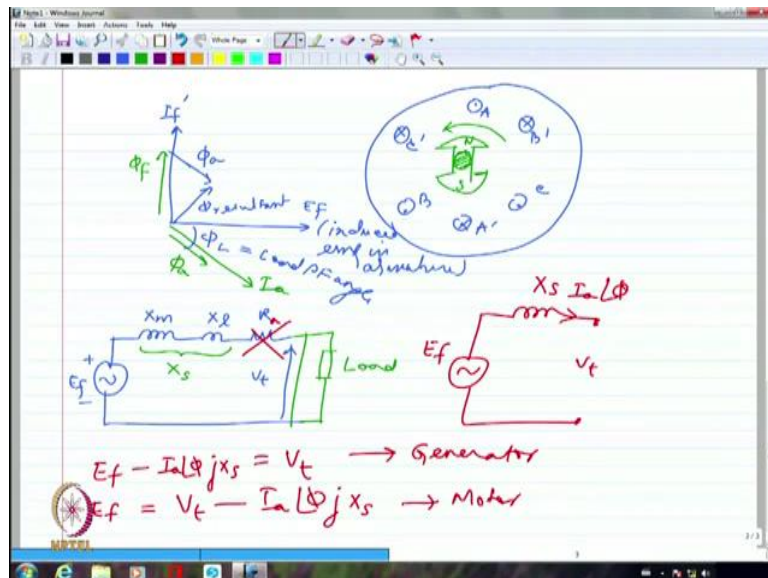 Note1 - Windows Journal
File Edit View Insert Actions Tools Help
Whole Page
B I
If'
ϕf
ϕa
ϕresultant
Ef
(induced
emf in
armature)
ϕL = Load Pf angle
ϕa
Ia
A
B'
C'
N
S
B
C
A'
Xm Xl Ra
Xs
+
Ef
-
Vt
Load
Xs Ia∠ϕ
Ef
Vt
Ef - Ia∠ϕ jXs = Vt → Generator
Ef = Vt - Ia∠ϕ jXs → Motor
NPTEL
3